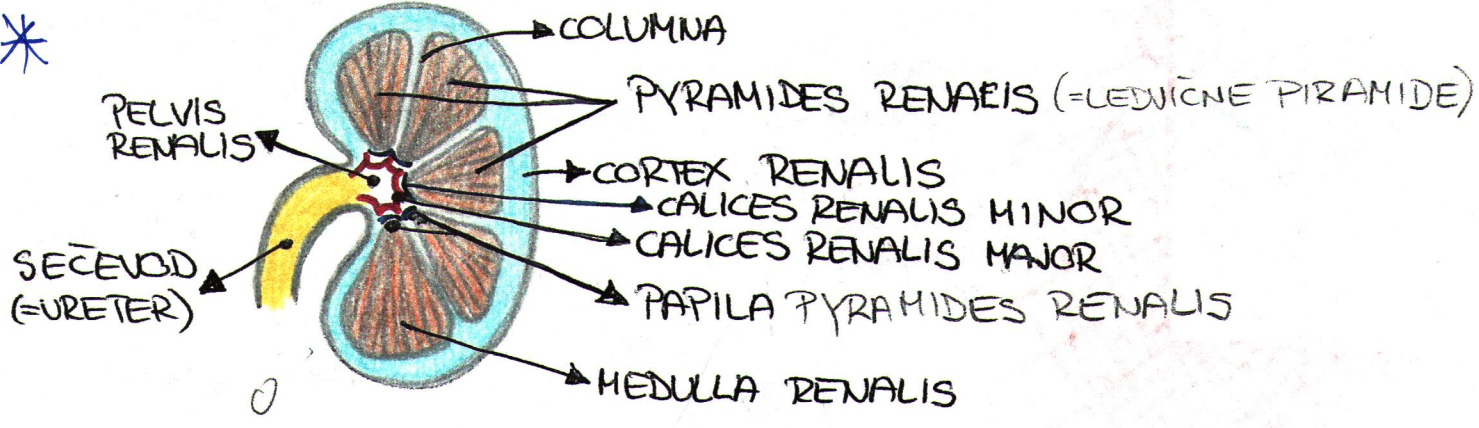 COLUMNA
PYRAMIDES RENALIS (=LEDVIČNE PIRAMIDE)
PELVIS
RENALIS
CORTEX RENALIS
CALICES RENALIS MINOR
CALICES RENALIS MAJOR
SEČEVOD
(=URETER)
PAPILA PYRAMIDES RENALIS
MEDULLA RENALIS